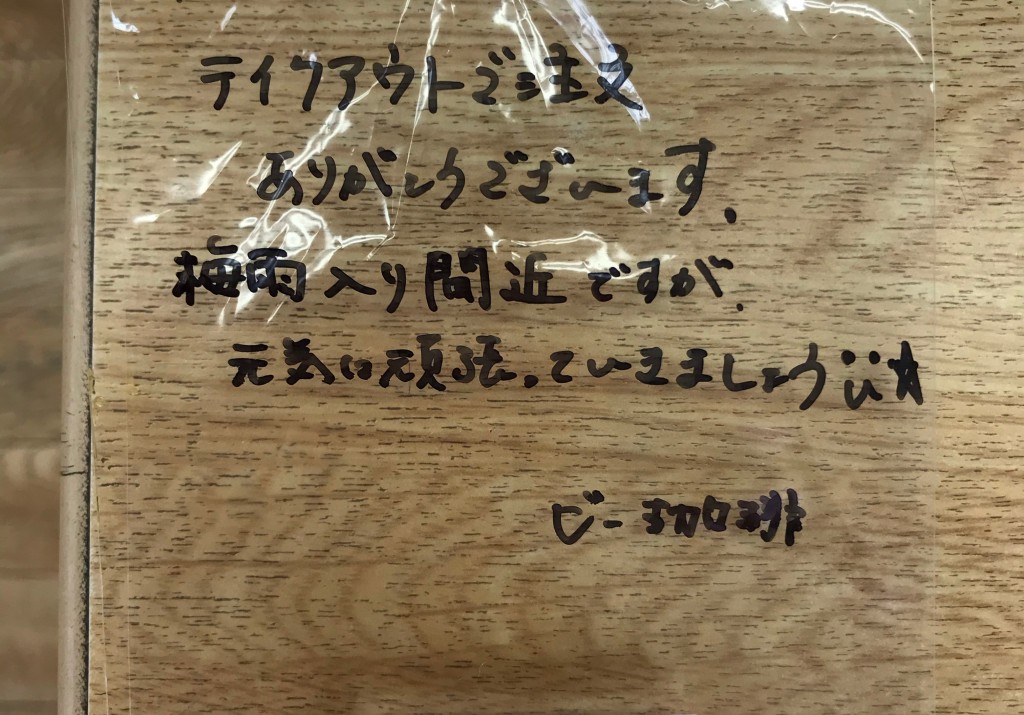 テイクアウトでご注文
ありがとうございます.
梅雨入り間近ですが.
元気に頑張っていきましょう☆
ビー珈琲